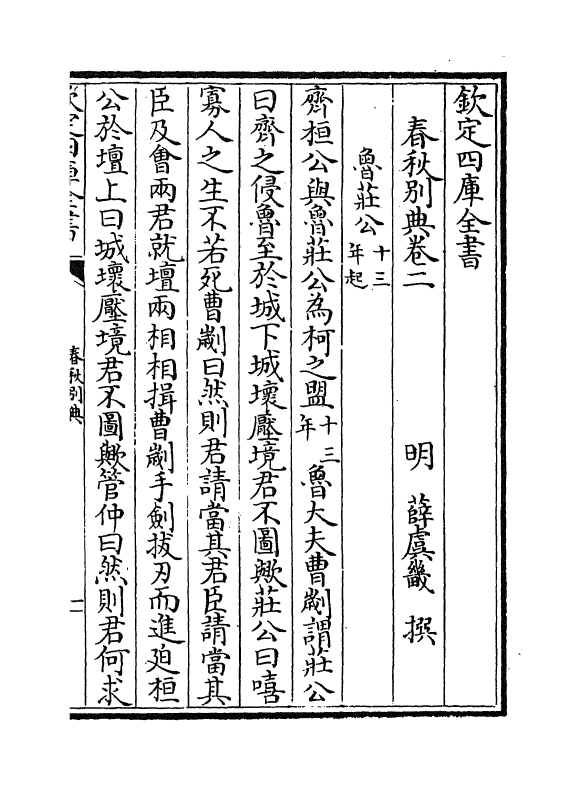 欽定四庫全書
春秋别典卷二
明 薛虞畿 撰
魯莊公十三年起
齊桓公與魯莊公為柯之盟十三年魯大夫曹劌謂莊公
曰齊之侵魯至於城下城壞壓境君不圖歟莊公曰嘻
寡人之生不若死曹劌曰然則君請當其君臣請當其
臣及會兩君就壇兩相相揖曹劌手劍拔刃而進廹桓
公於壇上曰城壞壓境君不圖歟管仲曰然則君何求
欽定四庫全書
春秋别典